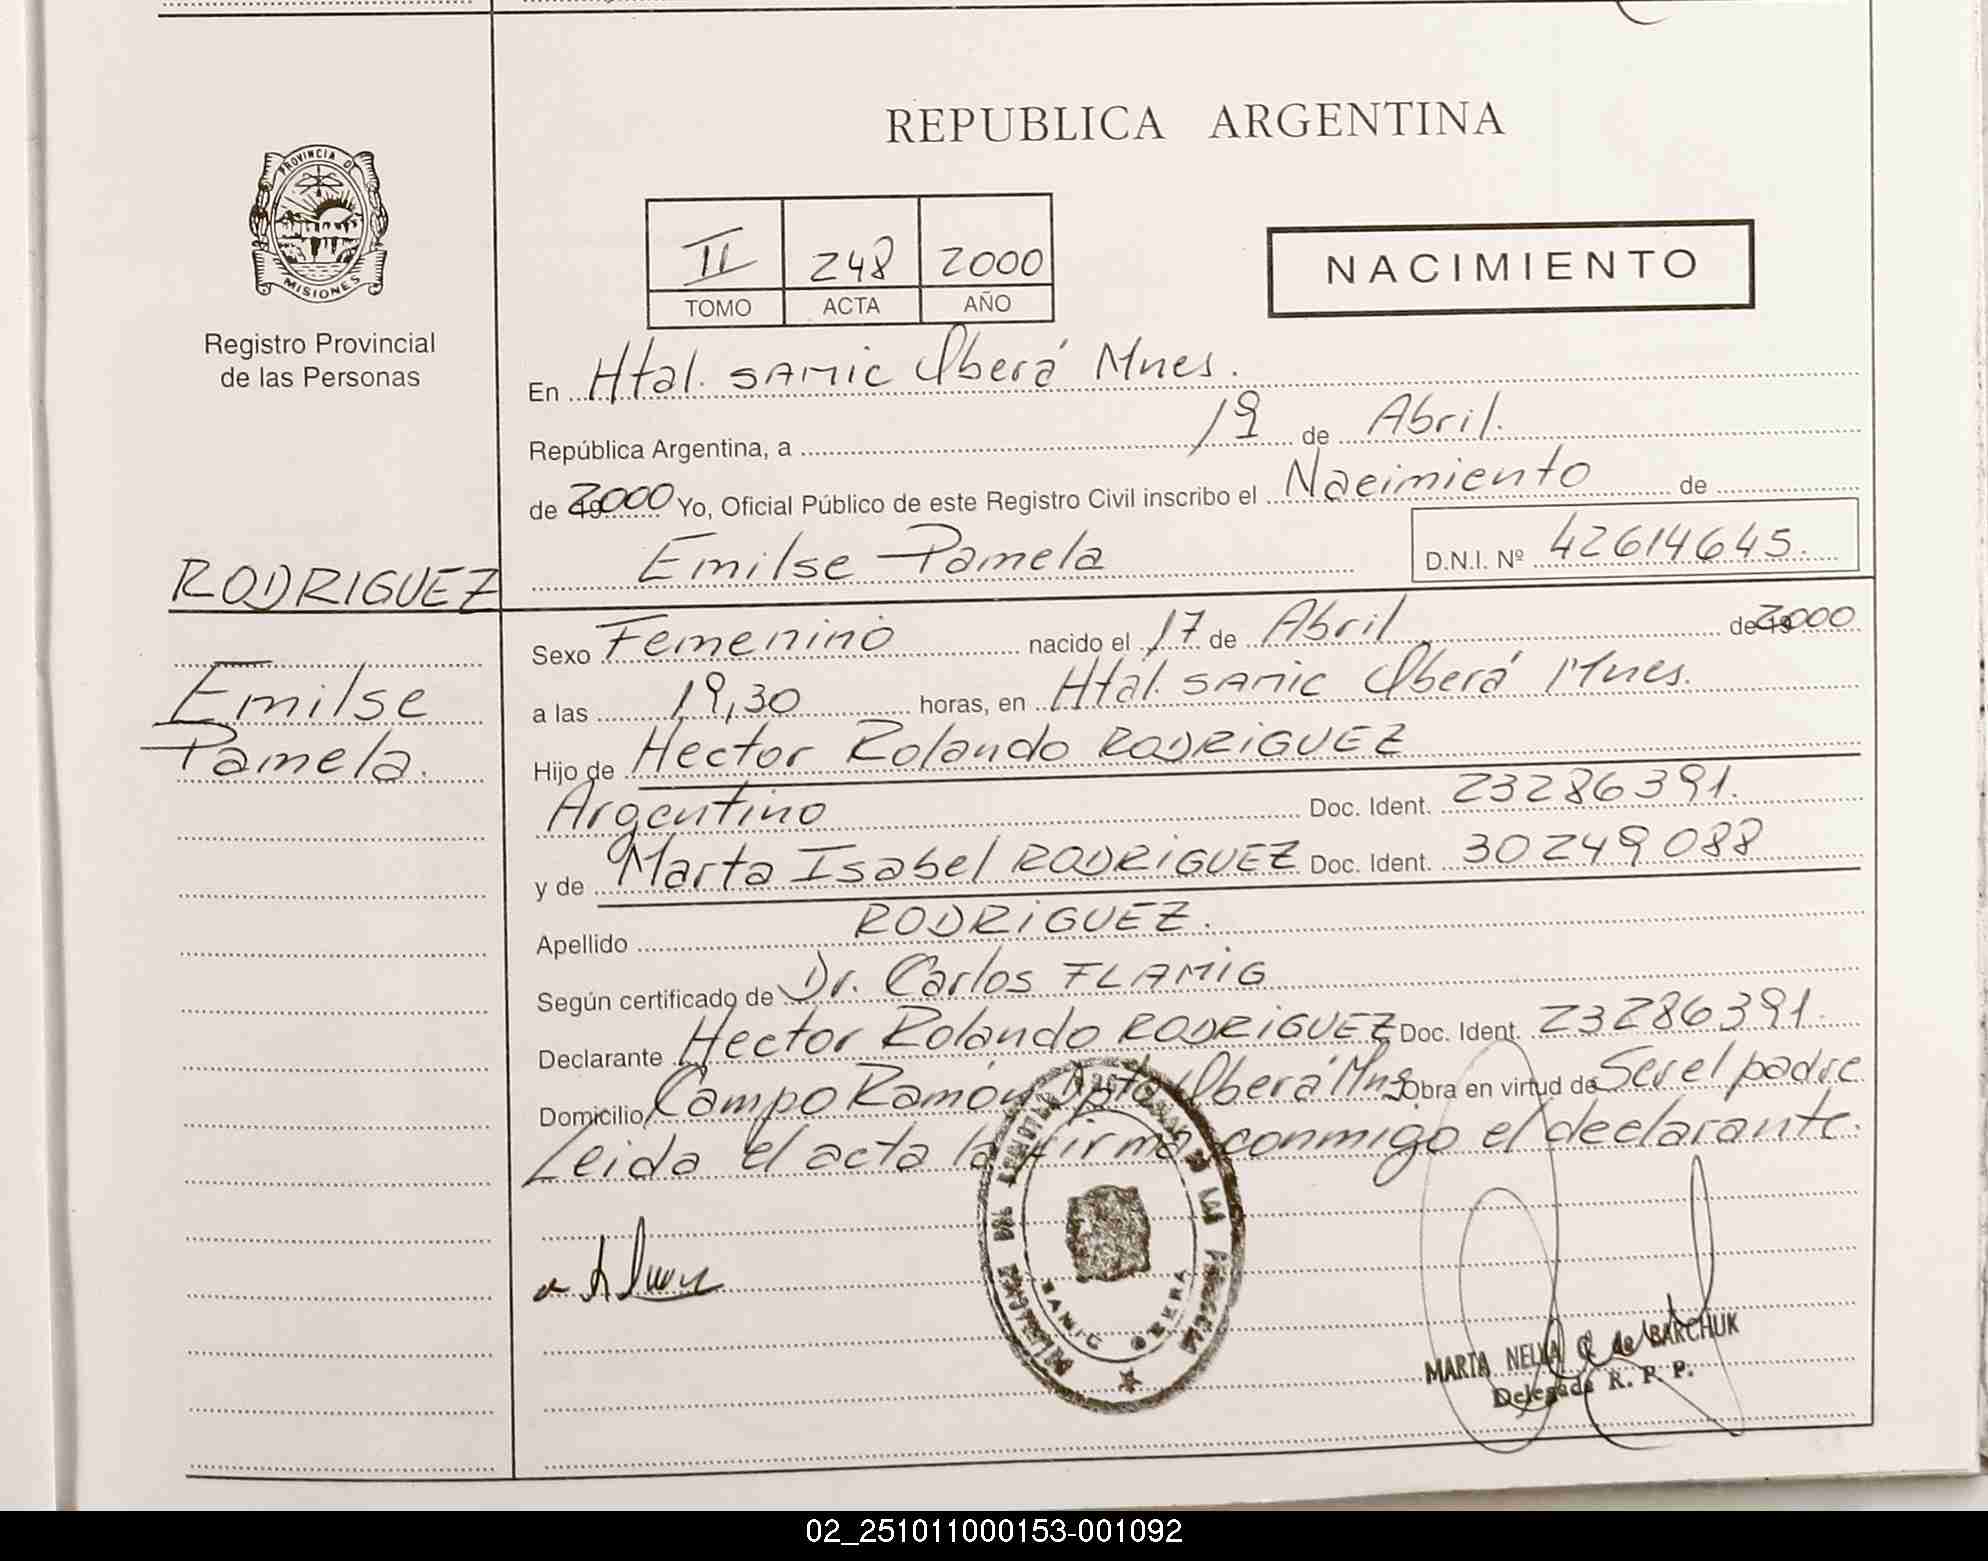 REPUBLICA ARGENTINA
PROVINCIA DE
MISIONES
Registro Provincial
de las Personas
II 248 2000
TOMO ACTA AÑO
NACIMIENTO
En Htal. SAMIC Oberá Mnes.
República Argentina, a 19 de Abril.
de 2000 Yo, Oficial Público de este Registro Civil inscribo el Nacimiento de
Emilse Pamela D.N.I. Nº 42614645.
RODRIGUEZ
Emilse
Pamela.
Sexo Femenino nacido el 17 de Abril de 2000
a las 19,30 horas, en Htal. SAMIC Oberá Mnes.
Hijo de Hector Rolando RODRIGUEZ
Argentino Doc. Ident. 23286391.
y de Marta Isabel RODRIGUEZ Doc. Ident. 30249088
Apellido RODRIGUEZ.
Según certificado de Dr. Carlos FLAMIG
Declarante Hector Rolando RODRIGUEZ Doc. Ident. 23286391.
Domicilio Campo Ramón Dpto Oberá Mns Obra en virtud de Ser el padre
Leida el acta la firma conmigo el declarante.
SAMIC OBERA
MARTA NELIA G. de BARCHUK
Delegada R. P. P.
02_251011000153-001092